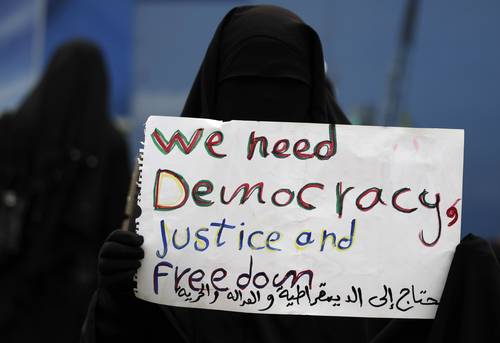 We need
Democracy,
Justice and
Freedom
حتاج إلى الديمقراطية و العدالة والحرية